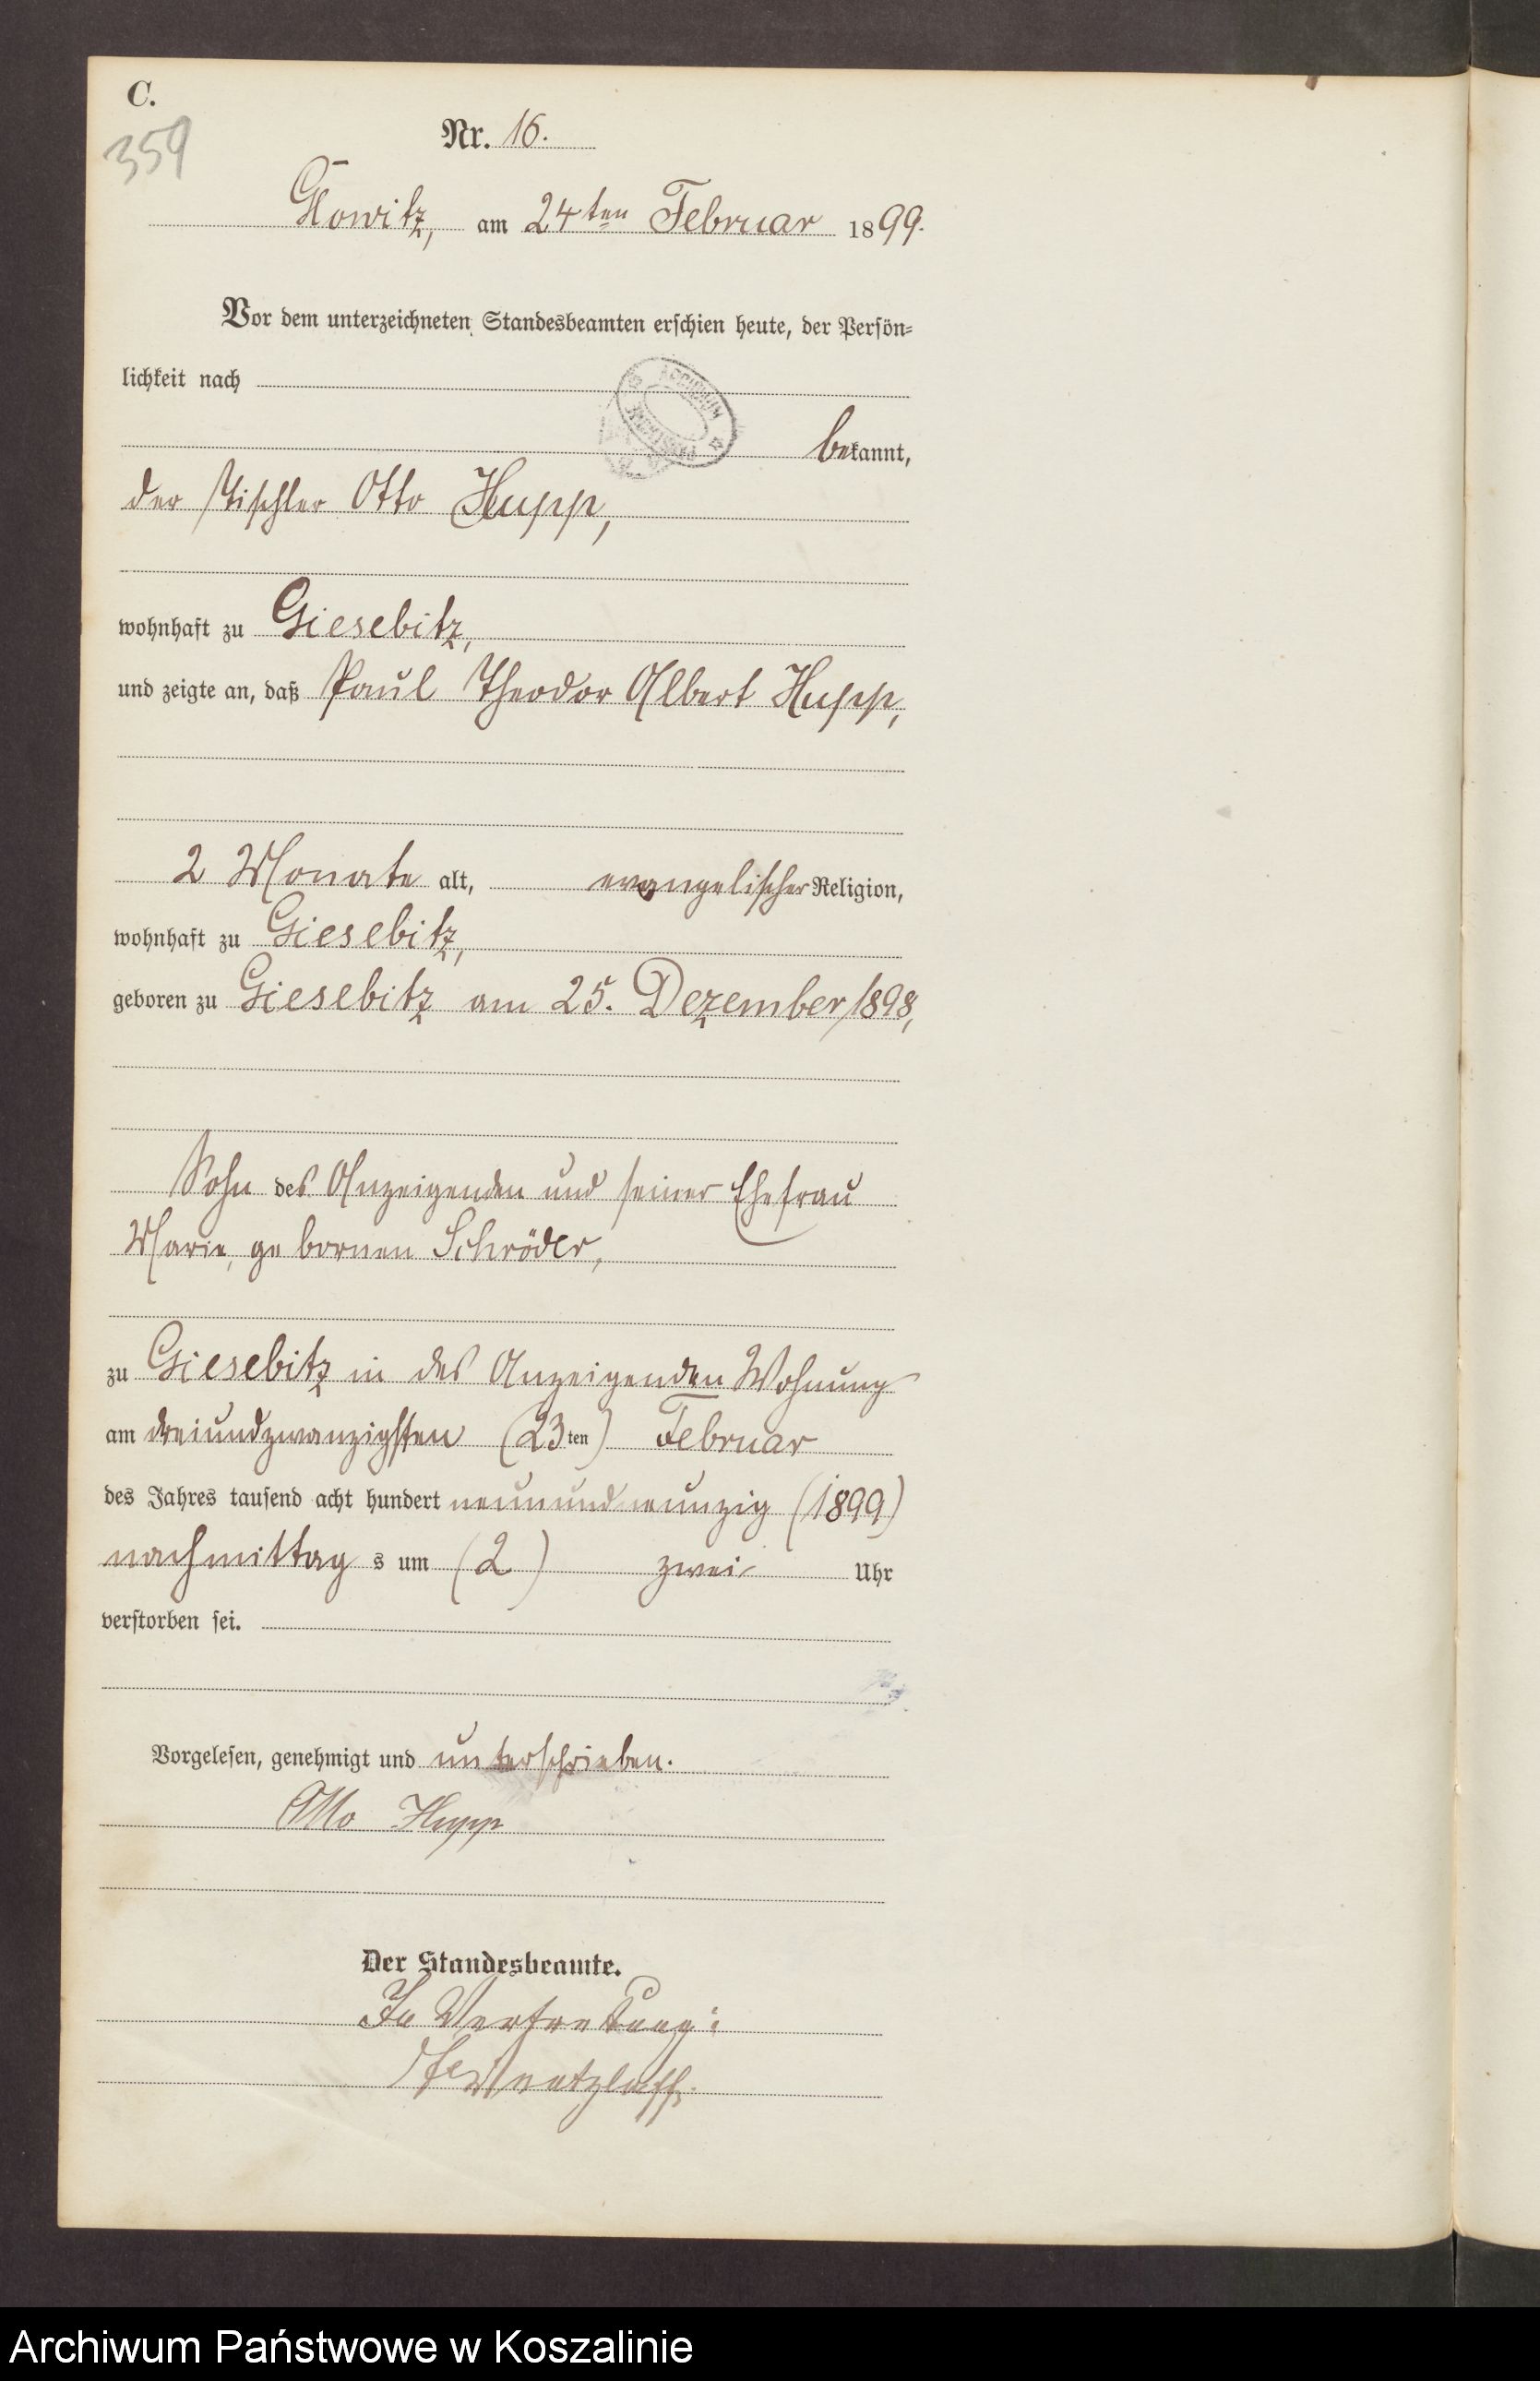 C.
359
Nr. 16.
Glowitz, am 24ten Februar 1899.
Vor dem unterzeichneten Standesbeamten erschien heute, der Persön-
lichkeit nach
bekannt,
der Tischler Otto Hupp,
wohnhaft zu Giesebitz,
und zeigte an, daß Paul Theodor Albert Hupp,
2 Monate alt, evangelischer Religion,
wohnhaft zu Giesebitz,
geboren zu Giesebitz am 25. Dezember 1898,
Sohn des Anzeigenden und seiner Ehefrau
Marie, gebornen Schröder,
zu Giesebitz in des Anzeigenden Wohnung
am dreiundzwanzigsten (23ten) Februar
des Jahres tausend acht hundert neunundneunzig (1899)
nachmittag s um (2) zwei Uhr
verstorben sei.
Vorgelesen, genehmigt und unterschrieben.
Otto Hupp
Der Standesbeamte.
In Vertretung:
Archiwum Państwowe w Koszalinie